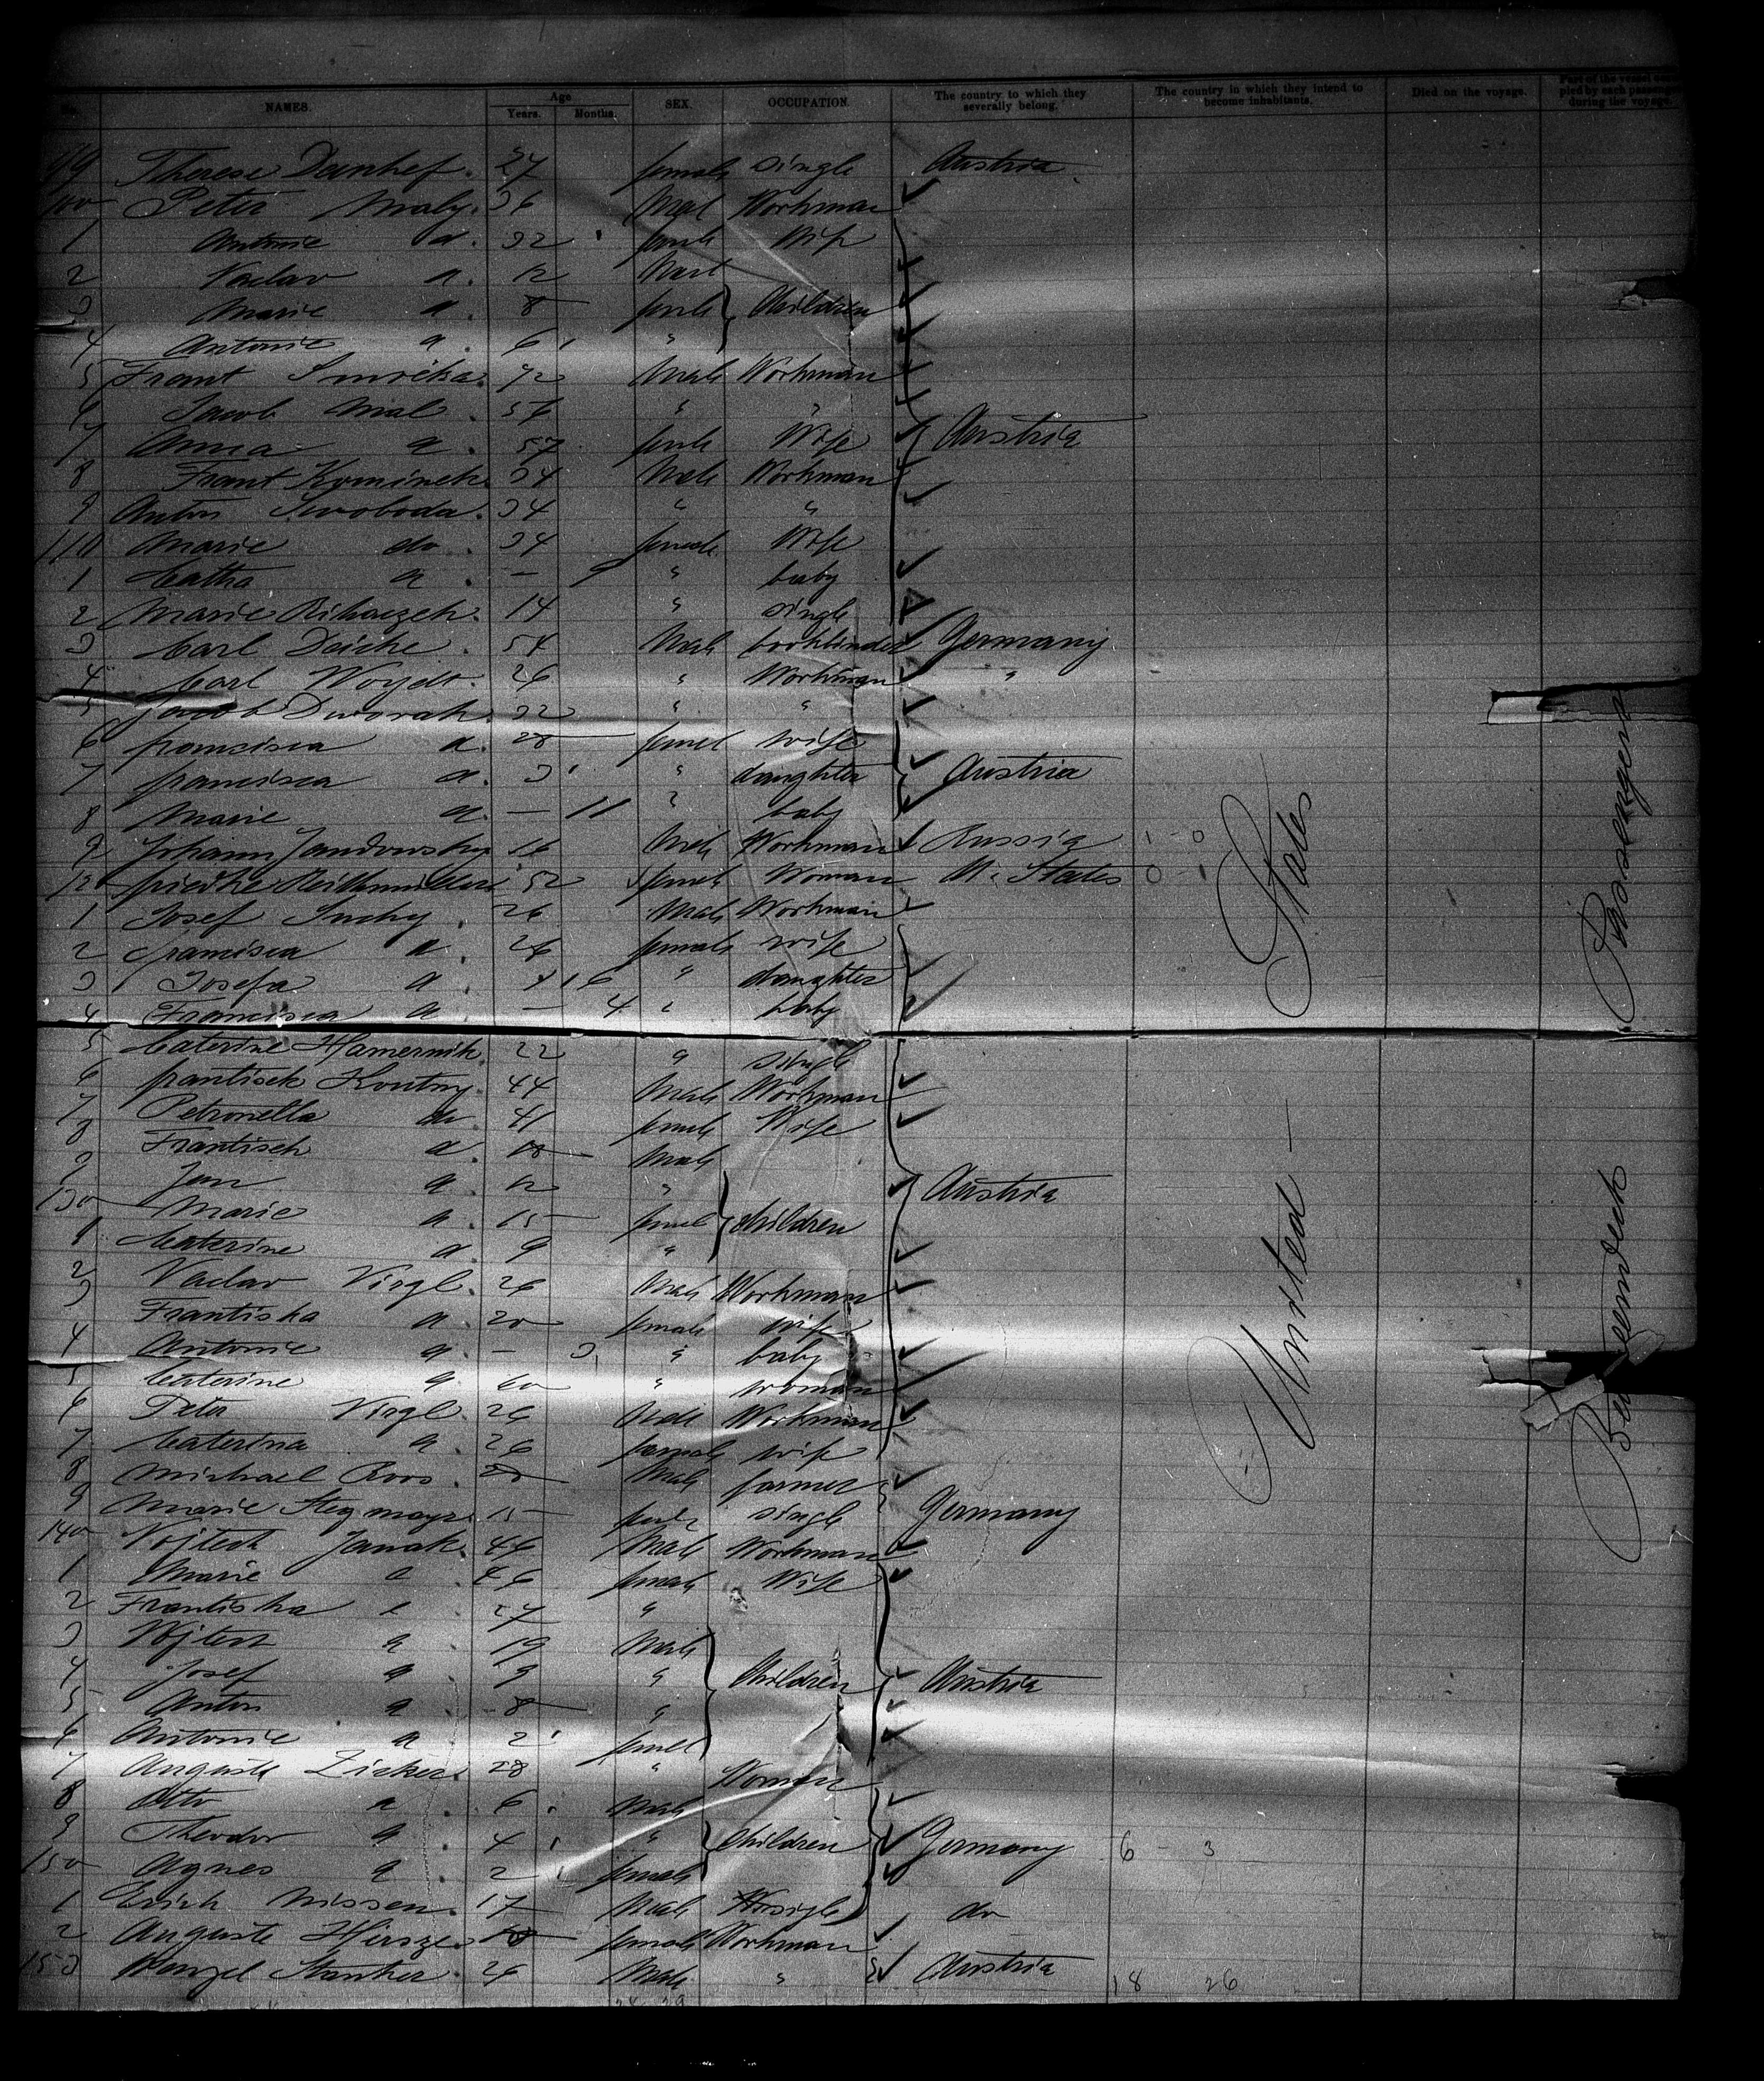 No. NAMES. Age Years. Months. SEX. OCCUPATION. The country to which they severally belong. The country in which they intend to become inhabitants. Died on the voyage. Part of the vessel occupied by each passenger during the voyage.
99 Therese 27 female single Austria
100 Peter Maly. 36 Male Workman
1 Antonie d. 32 female Wife
2 Vaclav d. 12 Male
3 Marie d. 8 female Children
4 Antonie d. 6 "
5 Frant Smrcka. 42 Male Workman
6 Jacob Mal. 56 " "
7 Anna d. 57 female Wife Austria
8 Frant Kominek 34 Male Workman
9 Anton Swoboda. 34 " "
110 Marie do. 34 female Wife
1 Catha d. — 9 " baby
2 Marie 14 " single
3 Carl Deicke. 54 Male bookbinder Germany
4 Carl Woydt. 26 " Workman "
5 Jacob Dworak. 32 " "
6 francisca d. 28 femel wife
7 francisca d. 3 " daughter Austria
8 Marie d. — 11 " baby
9 Johann Jandowsky 16 Male Workman Russia 1 - 0
120 52 female Woman U. States 0 - 1
1 Josef Suchy. 26 Male Workman
2 francisca d. 26 female wife
3 Josefa d. 4 6 " daughter
4 Francisca d. — 4 " baby
5 Caterine Hamernik. 22 " single
6 frantisek Koutny. 44 Male Workman
7 Petronella do. 41 female Wife
8 Frantisek d. 18 Male
9 Jan d. 12 " Austria
130 Marie d. 15 femel children
1 Caterine d. 9 "
2 Vaclav Virgl. 26 Male Workman
3 Frantiska d. 20 female wife
4 Antonie d. — 3 " baby
5 Caterine d. 60 " woman
6 Peter Virgl. 26 Male Workman
7 Caterina d. 26 female wife
8 Michael Roos. 20 Male farmer
9 Marie Stegmayr. 15 female single Germany
140 Vojtech Janak. 46 Male Workman
1 Marie d. 46 female Wife
2 Frantiska d. 27 "
3 Vojtech d. 19 Male
4 Josef d. 9 " Children Austria
5 Anton d. 8 "
6 Antonie d. 2 femel
7 Auguste Zicker. 28 " Woman
8 Otto d. 6 Male
9 Theodor d. 4 " Children Germany 6 - 3
150 Agnes d. 2 female
1 Erich Nissen. 17 Male single do
2 Auguste female Workman
153 Wenzel 24 Male " Austria 18 26
United States
Passengers